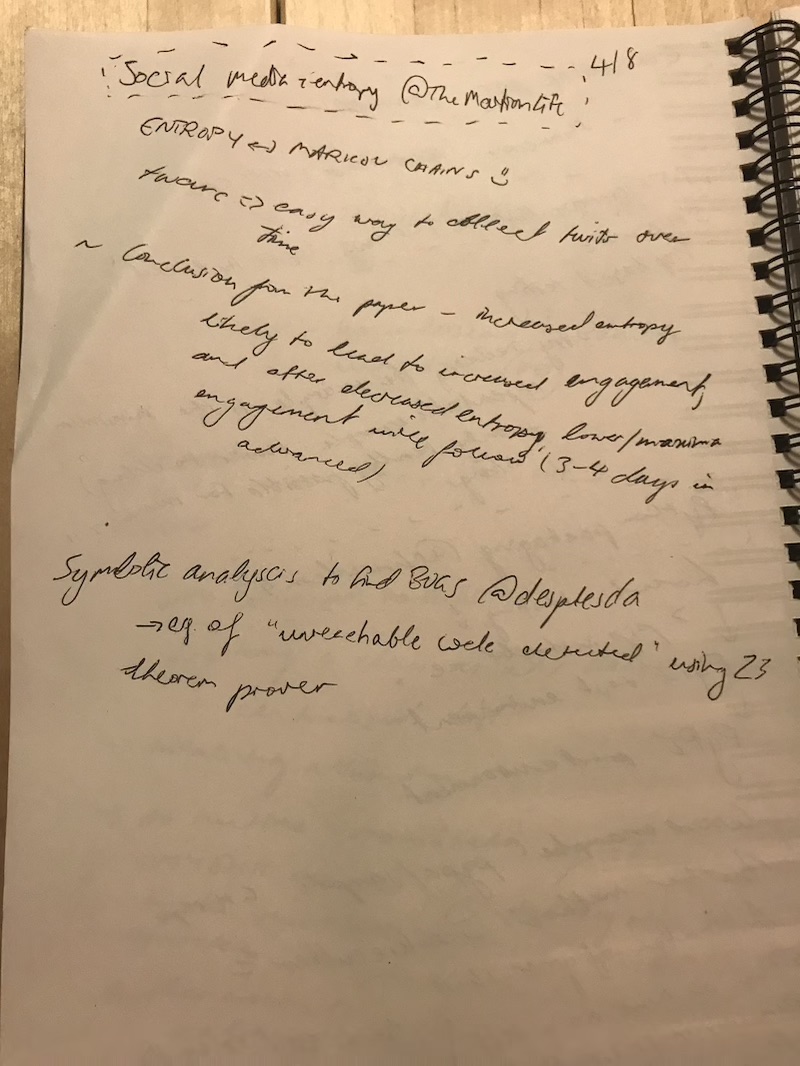 Social media & entropy @TheMartianLife 4/8
ENTROPY <-> MARKOV CHAINS :)
twarc => easy way to collect twits over
time
~ Conclusion for the paper - increased entropy
likely to lead to increased engagement,
and after decreased entropy, lower/maxima
engagement will follow (3-4 days in
advanced)
Symbolic analyscis to find BUGS @desplesda
→ eg. of "unreachable code detected" using Z3
theorem prover